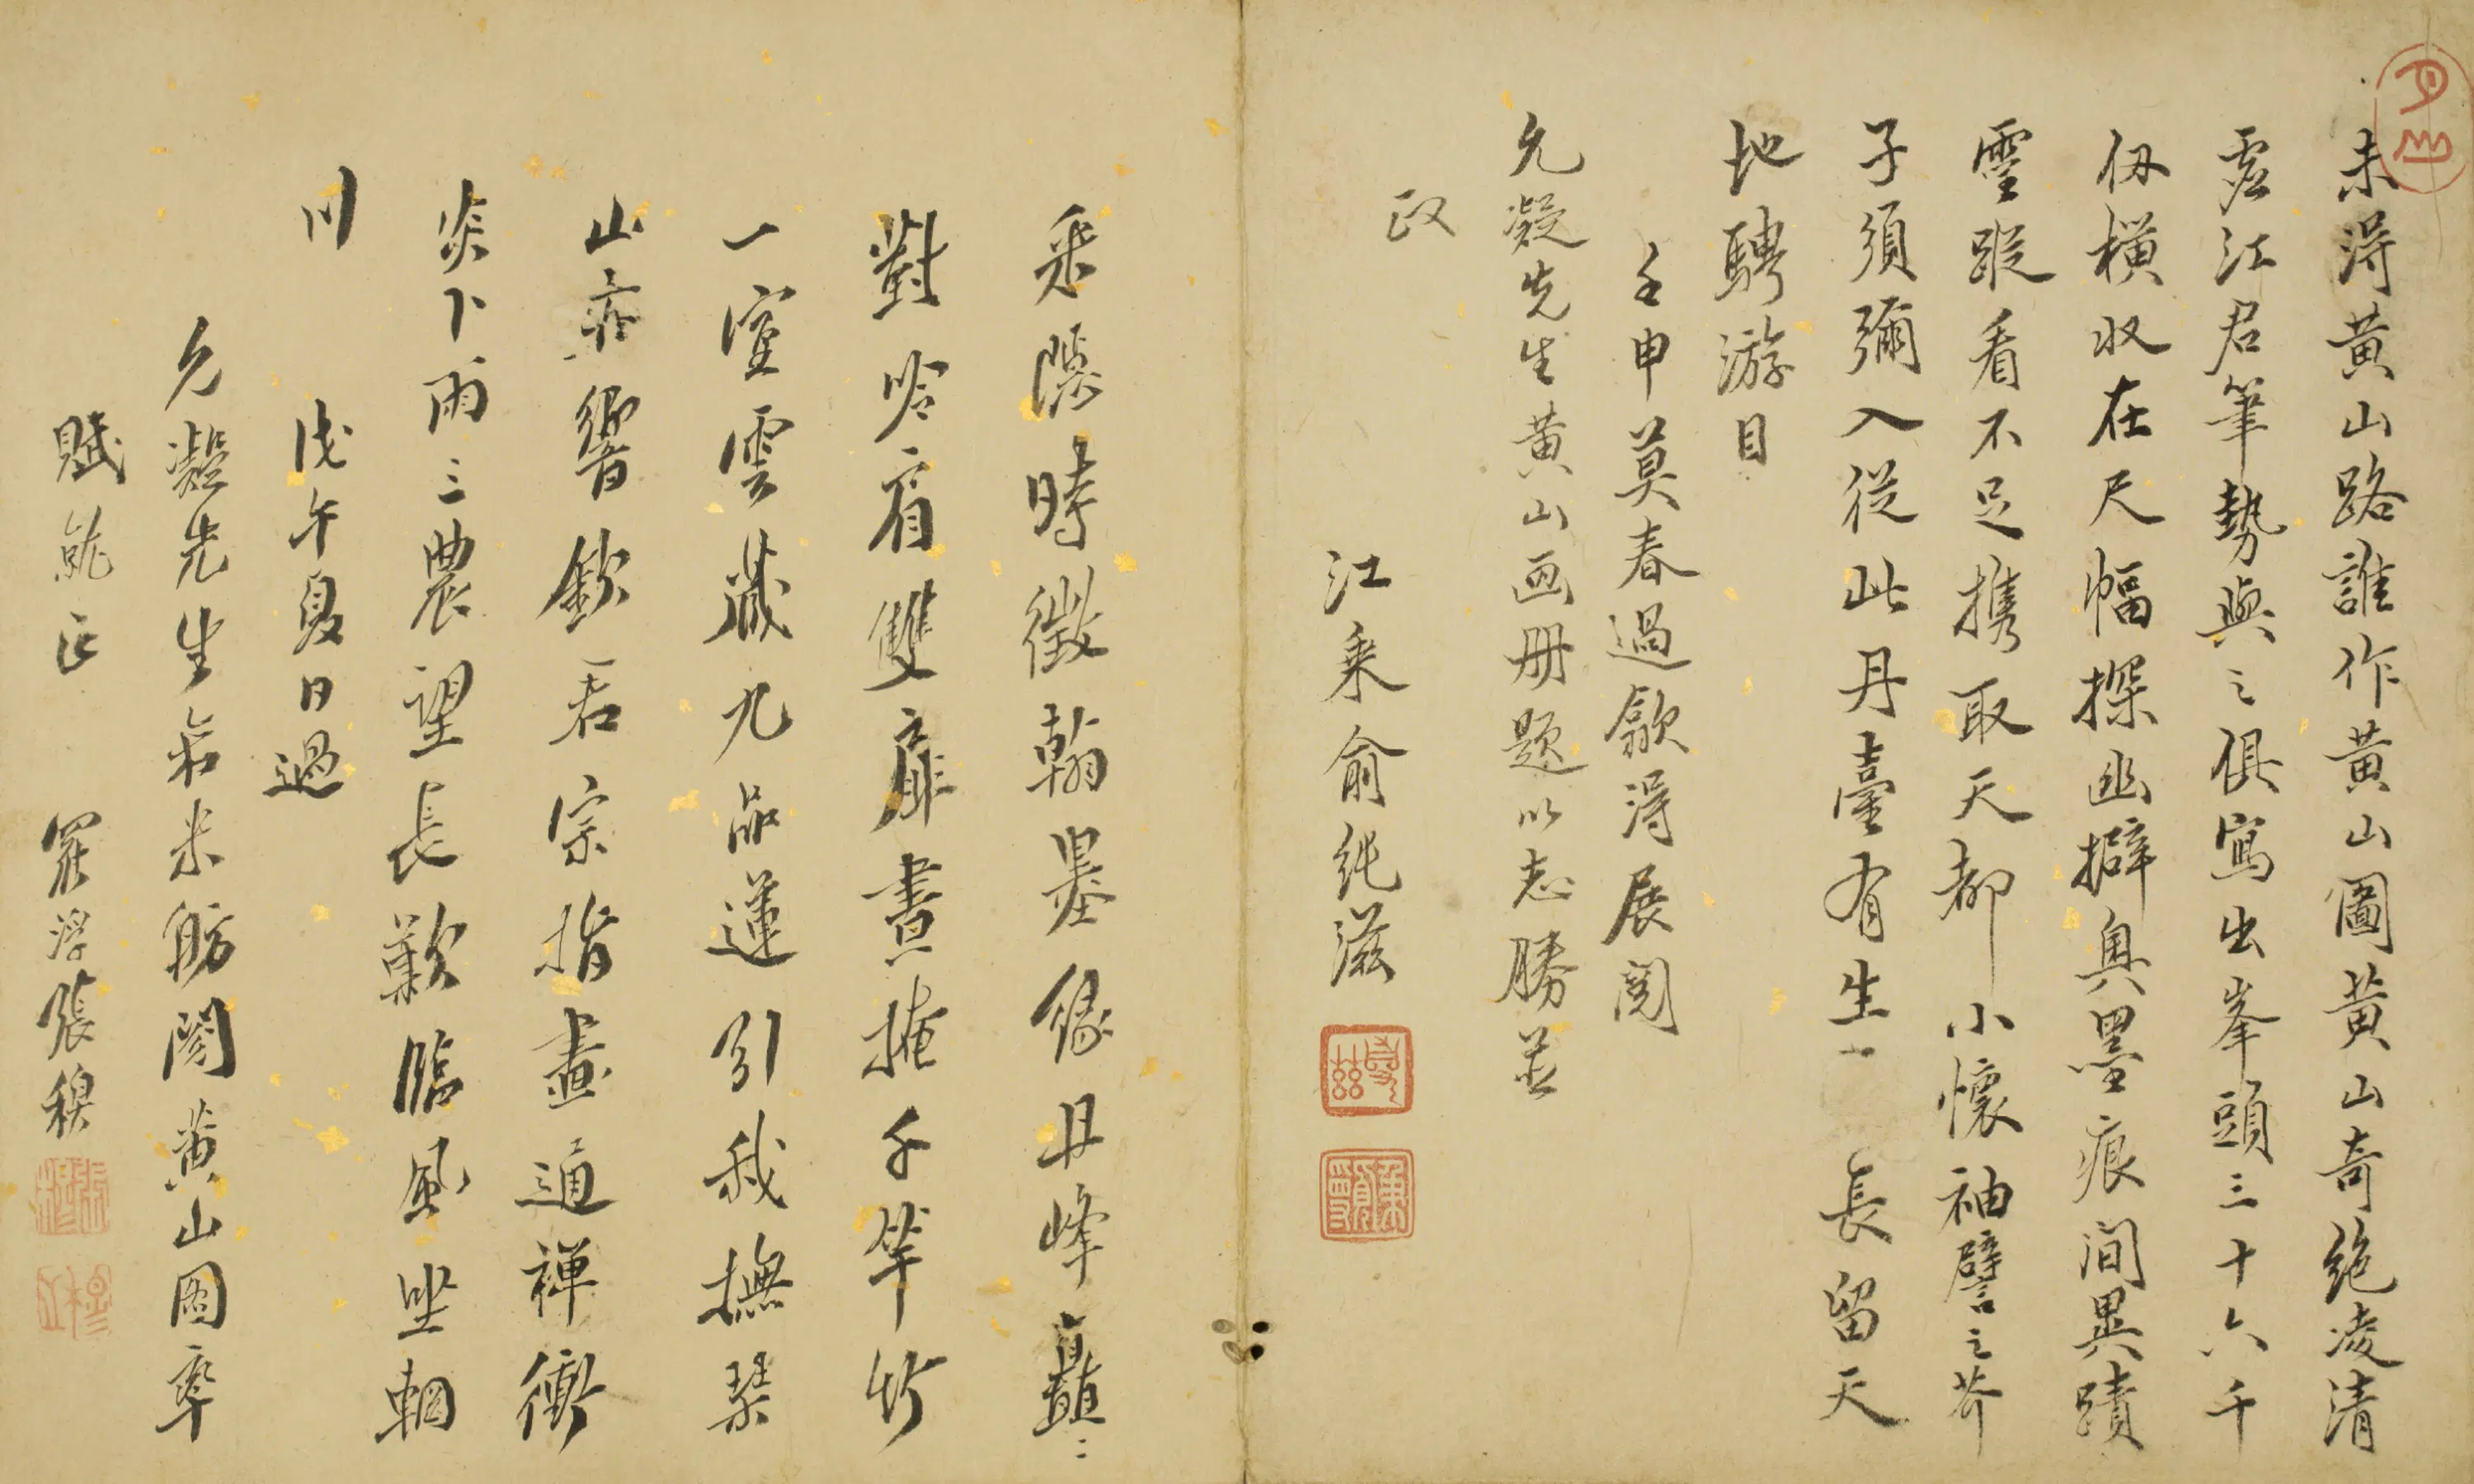 未得黃山路誰作黃山圖黃山奇絕凌清
虛江君筆勢與之俱寫出峯頭三十六千
仭橫收在尺幅探幽擗奥墨痕間異蹟
靈蹤看不足携取天都小懷袖譬之芥
子須彌入從此丹臺有生一長留天
地騁游目
壬申莫春過歙得展閱
允凝先生黃山画册題以志勝並
政
江乘俞綎滋
乘隱時徵翰墨緣丹峰矗〻
對吟肩雙扉晝掩千竿竹
一室雲藏九品蓮引我撫琴
山亦響欽君宗指畫通禪衝
炎卜雨三農望長歎臨風坐輞
川
戊午夏日過
允凝先生米舫閱黃山圖率
賦就正
羅浮張穆